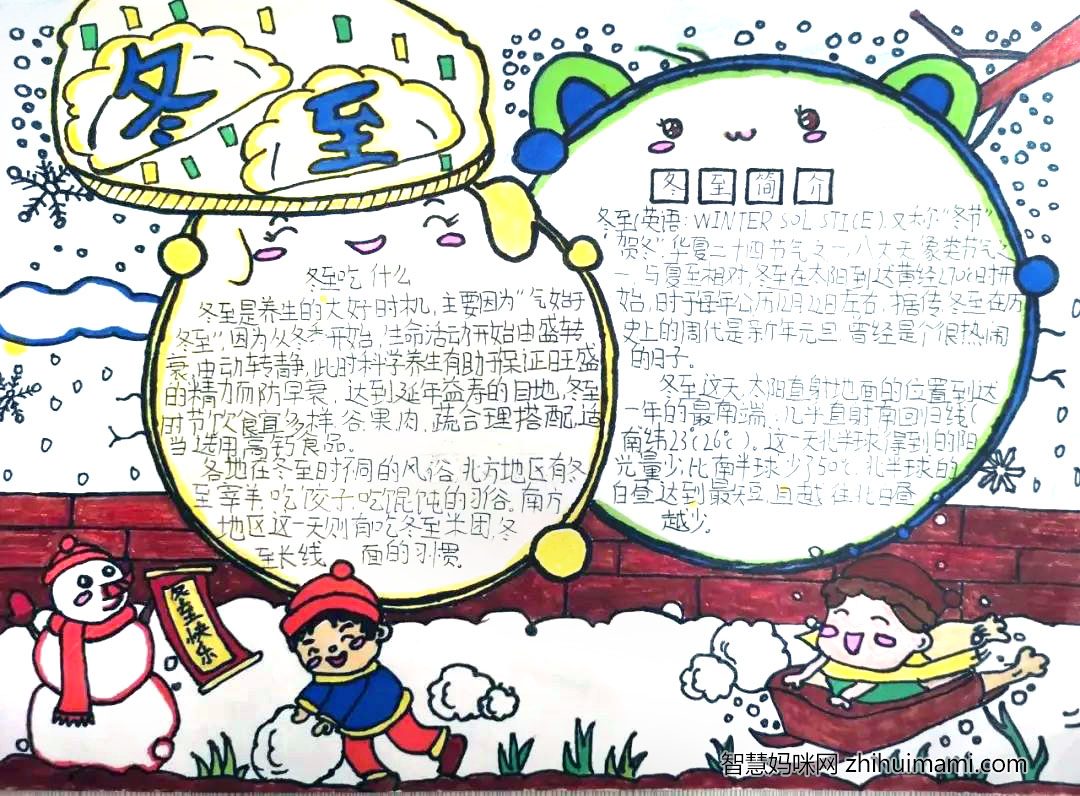 冬至
冬至吃什么
冬至是养生的大好时机,主要因为“气始于
冬至”,因为从冬季开始,生命活动开始由盛转
衰,由动转静,此时科学养生有助于保证旺盛
的精力而防早衰,达到延年益寿的目地,冬至
时节饮食宜多样,谷果、肉、蔬合理搭配,适
当选用高钙食品。
各地在冬至时有不同的风俗,北方地区有冬
至宰羊,吃饺子、吃馄饨的习俗。南方
地区这一天则有吃冬至米团,冬
至长线面的习惯。
冬至简介
冬至(英语:WINTER SOLSTICE).又称“冬节”
“贺冬”华夏二十四节气之一,八大天象类节气之
一,与夏至相对,冬至在太阳到达黄经270°时开
始,时于每年公历12月22日左右,据传,冬至在历
史上的周代是新年元旦,曾经是个很热闹
的日子。
冬至这天,太阳直身地面的位置到达
一年的最南端,几乎直射南回归线(
南纬23°(26°)。这一天北半球得到的阳
光量少,比南半球少了50%,北半球的
白昼达到最短,且越往北日昼
越少。
冬至快乐
智慧妈咪网 zhihuimami.com